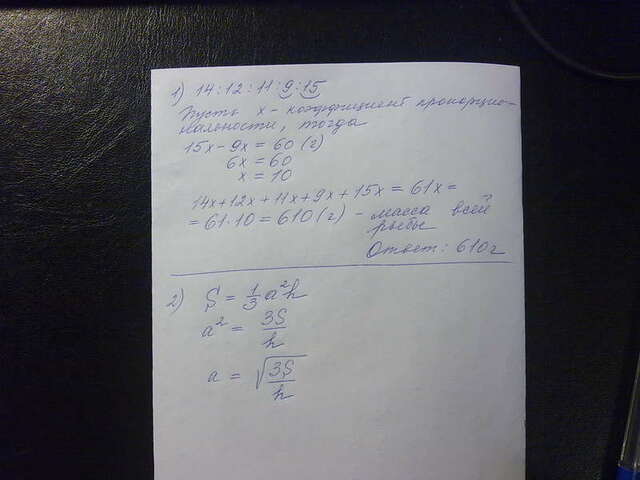 1) 14 : 12 : 11 : 9 : 15
Пусть x - коэффициент пропорцио-
нальности, тогда
15x - 9x = 60 (г)
6x = 60
x = 10
14x + 12x + 11x + 9x + 15x = 61x =
= 61 · 10 = 610 (г) - масса всей
рыбы
Ответ: 610 г
2) S = 1/3 a²h
a² = 3S/h
a = √(3S/h)